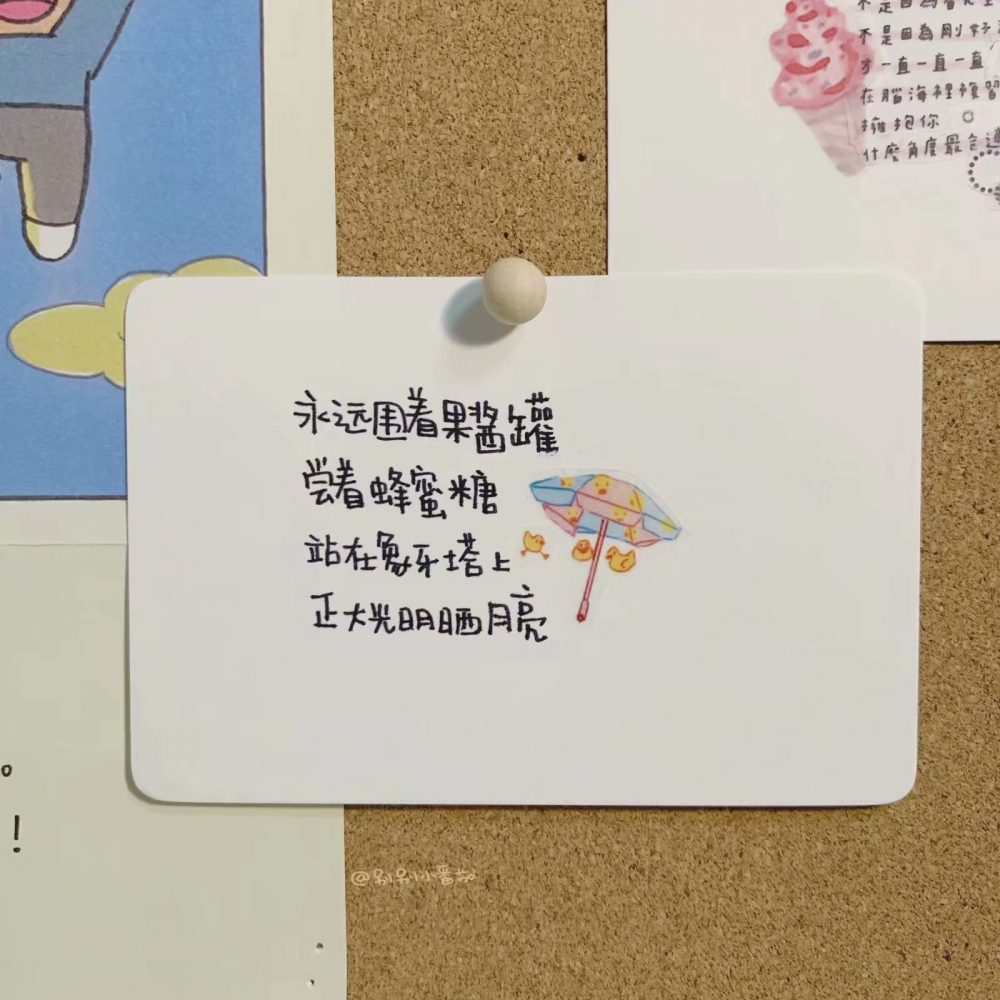 不是因為
不是因為剛好
才一直一直一直
在腦海裡複習
擁抱你
什麼角度最合適
永远围着果酱罐
尝着蜂蜜糖
站在象牙塔上
正大光明晒月亮
!